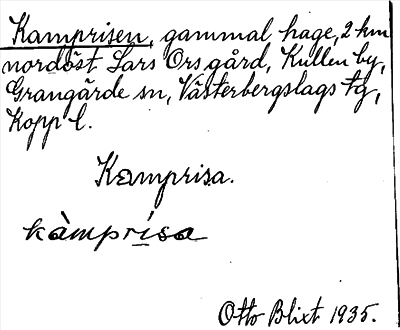 Kamprisen, gammal hage, 2 km
nordöst Lars Ors gård, Kullen by,
Grangärde sn, Västerbergslags tg,
Kopp l.
Kamprisa.
kàmprisa
Otto Blixt 1935.